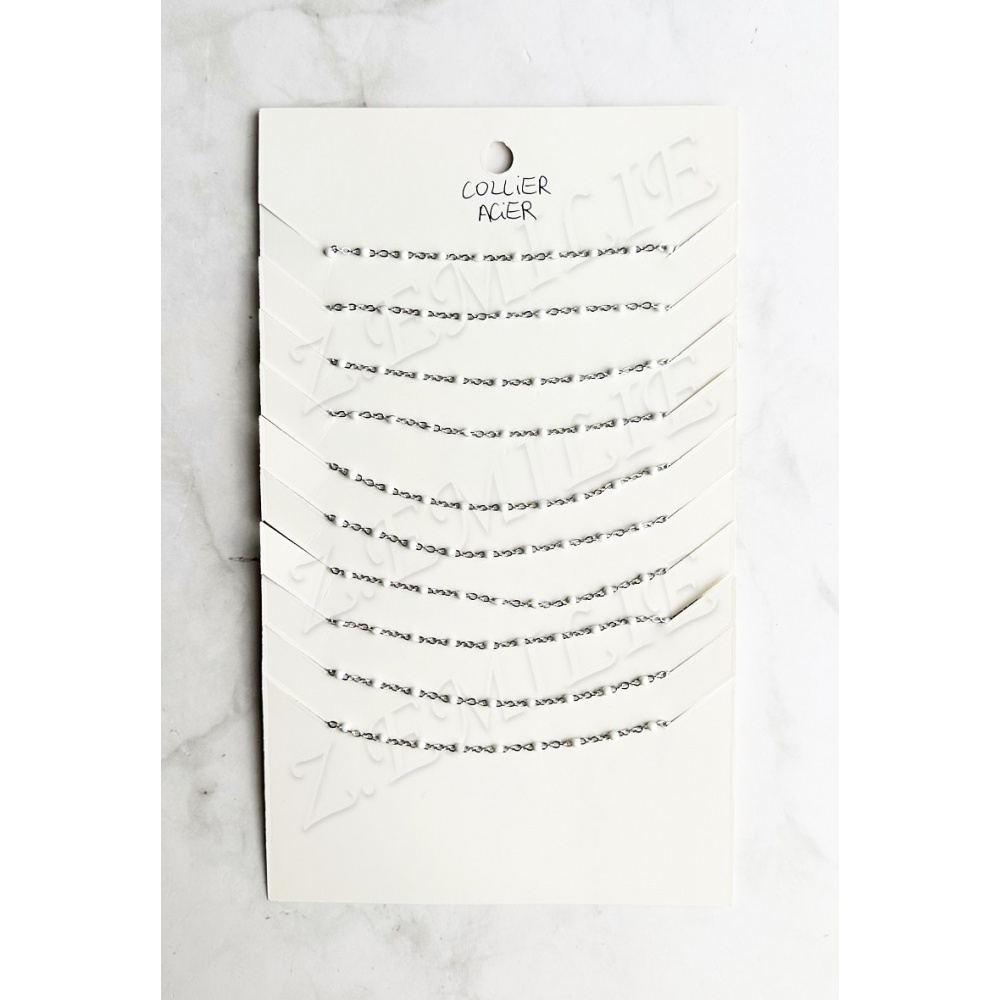 COLLiER
ACiER
Z.EMILIE
Z.EMILIE
Z.EMILIE